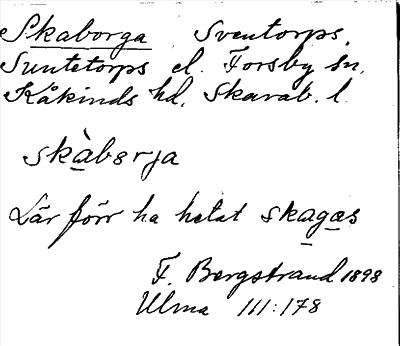 Skaborga Sventorps,
Suntetorps el. Forsby sn,
Kåkinds hd, Skarab. l.
skàbɞrja
Lär förr ha hetat skagas
F. Bergstrand 1898
Ulma 111:178